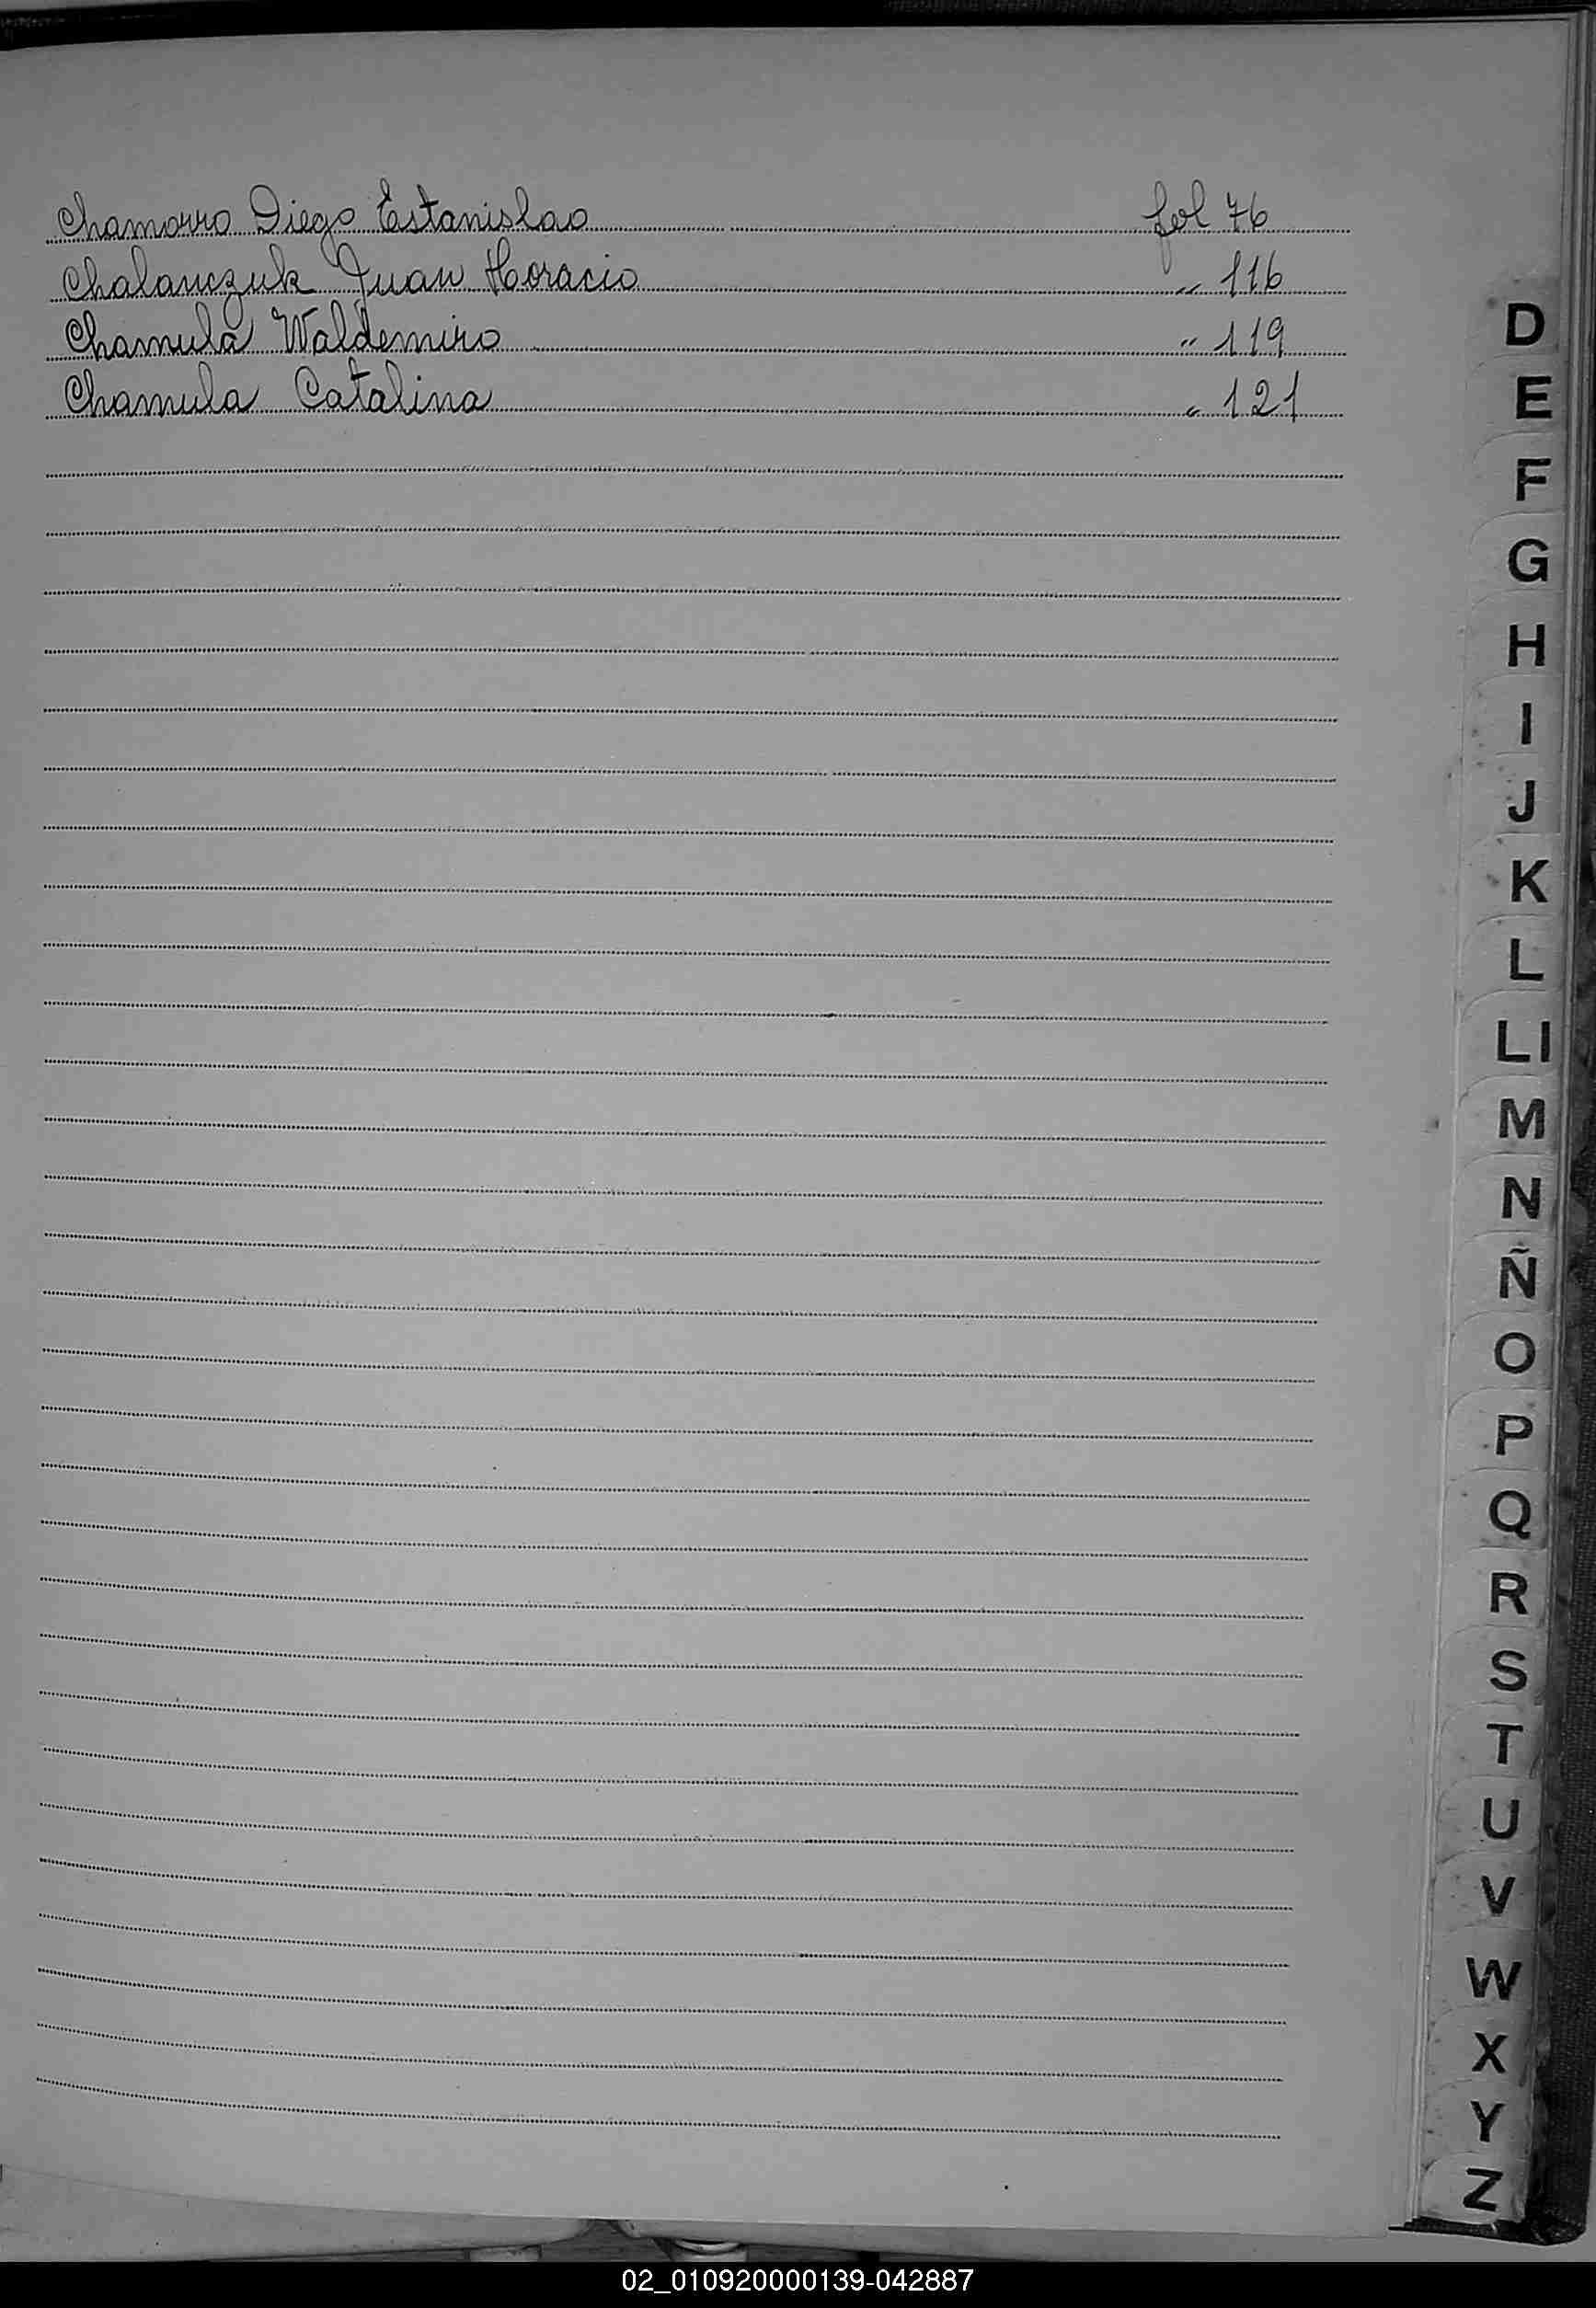 Chamorro Diego Estanislao fol 76
Chalanczuk Juan Horacio " 116
Chamula Waldemiro " 119
Chamula Catalina " 121
D
E
F
G
H
I
J
K
L
Ll
M
N
Ñ
O
P
Q
R
S
T
U
V
W
X
Y
Z
02_010920000139-042887